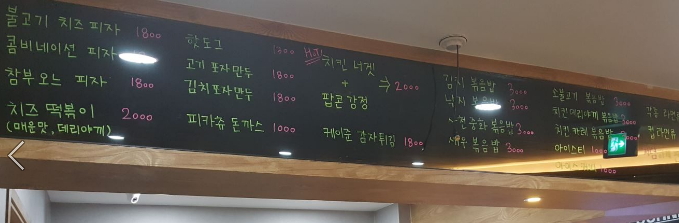 불고기 치즈 피자 1800
콤비네이션 피자
참부오느 피자 1800
치즈 떡볶이 2000
(매운맛, 데리야끼)
핫도그
고기 포자만두 1800
김치포자만두 1800
피카츄 돈까스 1000
Hot! 치킨 너겟
+
팝콘강정
⇒ 2000
케이준 감자튀김 1800
김치 볶음밥 3000
낙지 볶음밥 3000
중화 볶음밥 3000
새우 볶음밥 3000
소불고기 볶음밥 3000
치킨데리야끼 볶음밥 3000
치킨 카레 볶음밥
아이스티